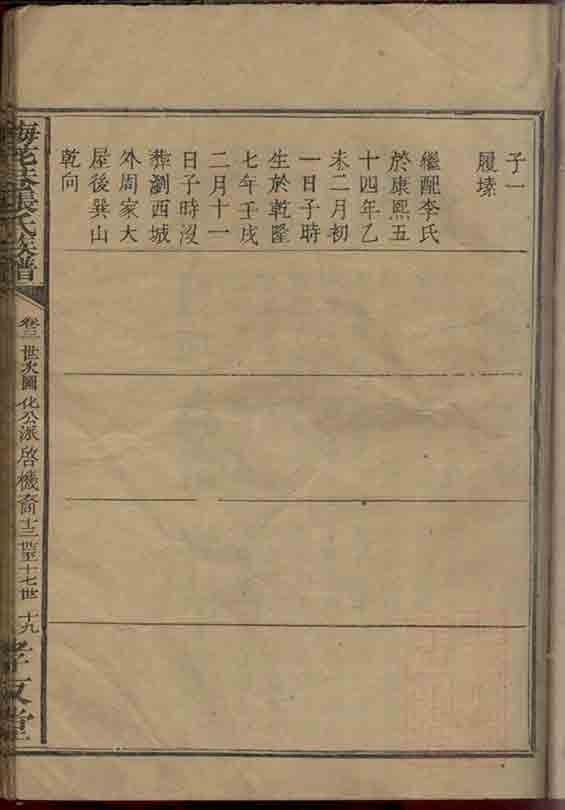 子一
履
繼配李氏
於康熙五
十四年乙
未二月初
一日子時
生於乾隆
七年壬戌
二月十一
日子時沒
葬瀏西城
外周家大
屋後巽山
乾向
張氏族譜
卷三 世次圖 化公派 啓機裔 十三世至十七世 十九
孝友堂